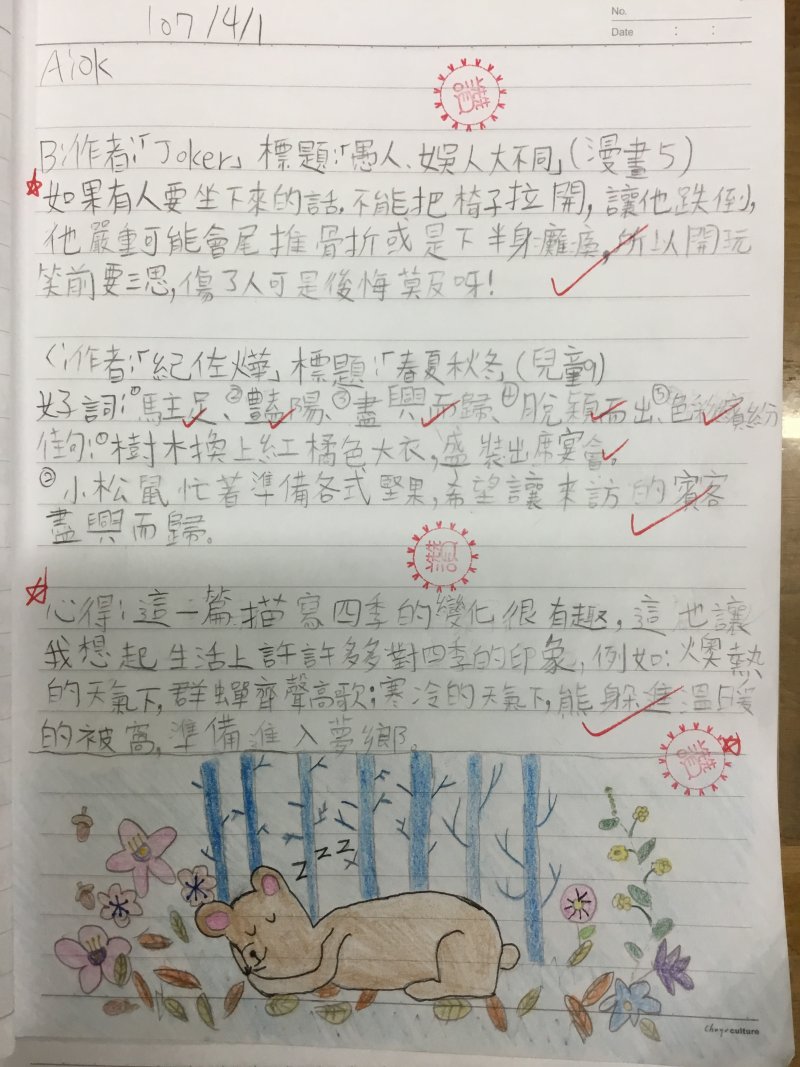 107/4/1
No.
Date : :
A:ok
B:作者:「Joker」標題:「愚人、娛人大不同」(漫畫5)
如果有人要坐下來的話,不能把椅子拉開,讓他跌倒,
他嚴重可能會尾推骨折或是下半身癱瘓,所以開玩
笑前要三思,傷了人可是後悔莫及呀!
く:作者:「紀佐燁」標題:「春夏秋冬」(兒童9)
好詞:①駐足、②豔陽、③盡興而歸、④脫穎而出、⑤色彩繽紛
佳句:①樹木換上紅橘色大衣,盛裝出席宴會。
②小松鼠忙著準備各式堅果,希望讓來訪的賓客
盡興而歸。
心得:這一篇描寫四季的變化很有趣,這也讓
我想起生活上許許多多對四季的印象,例如:燠熱
的天氣下,群蟬齊聲高歌;寒冷的天氣下,熊躲進溫暖
的被窩,準備進入夢鄉。
z z z
Chuyu culture